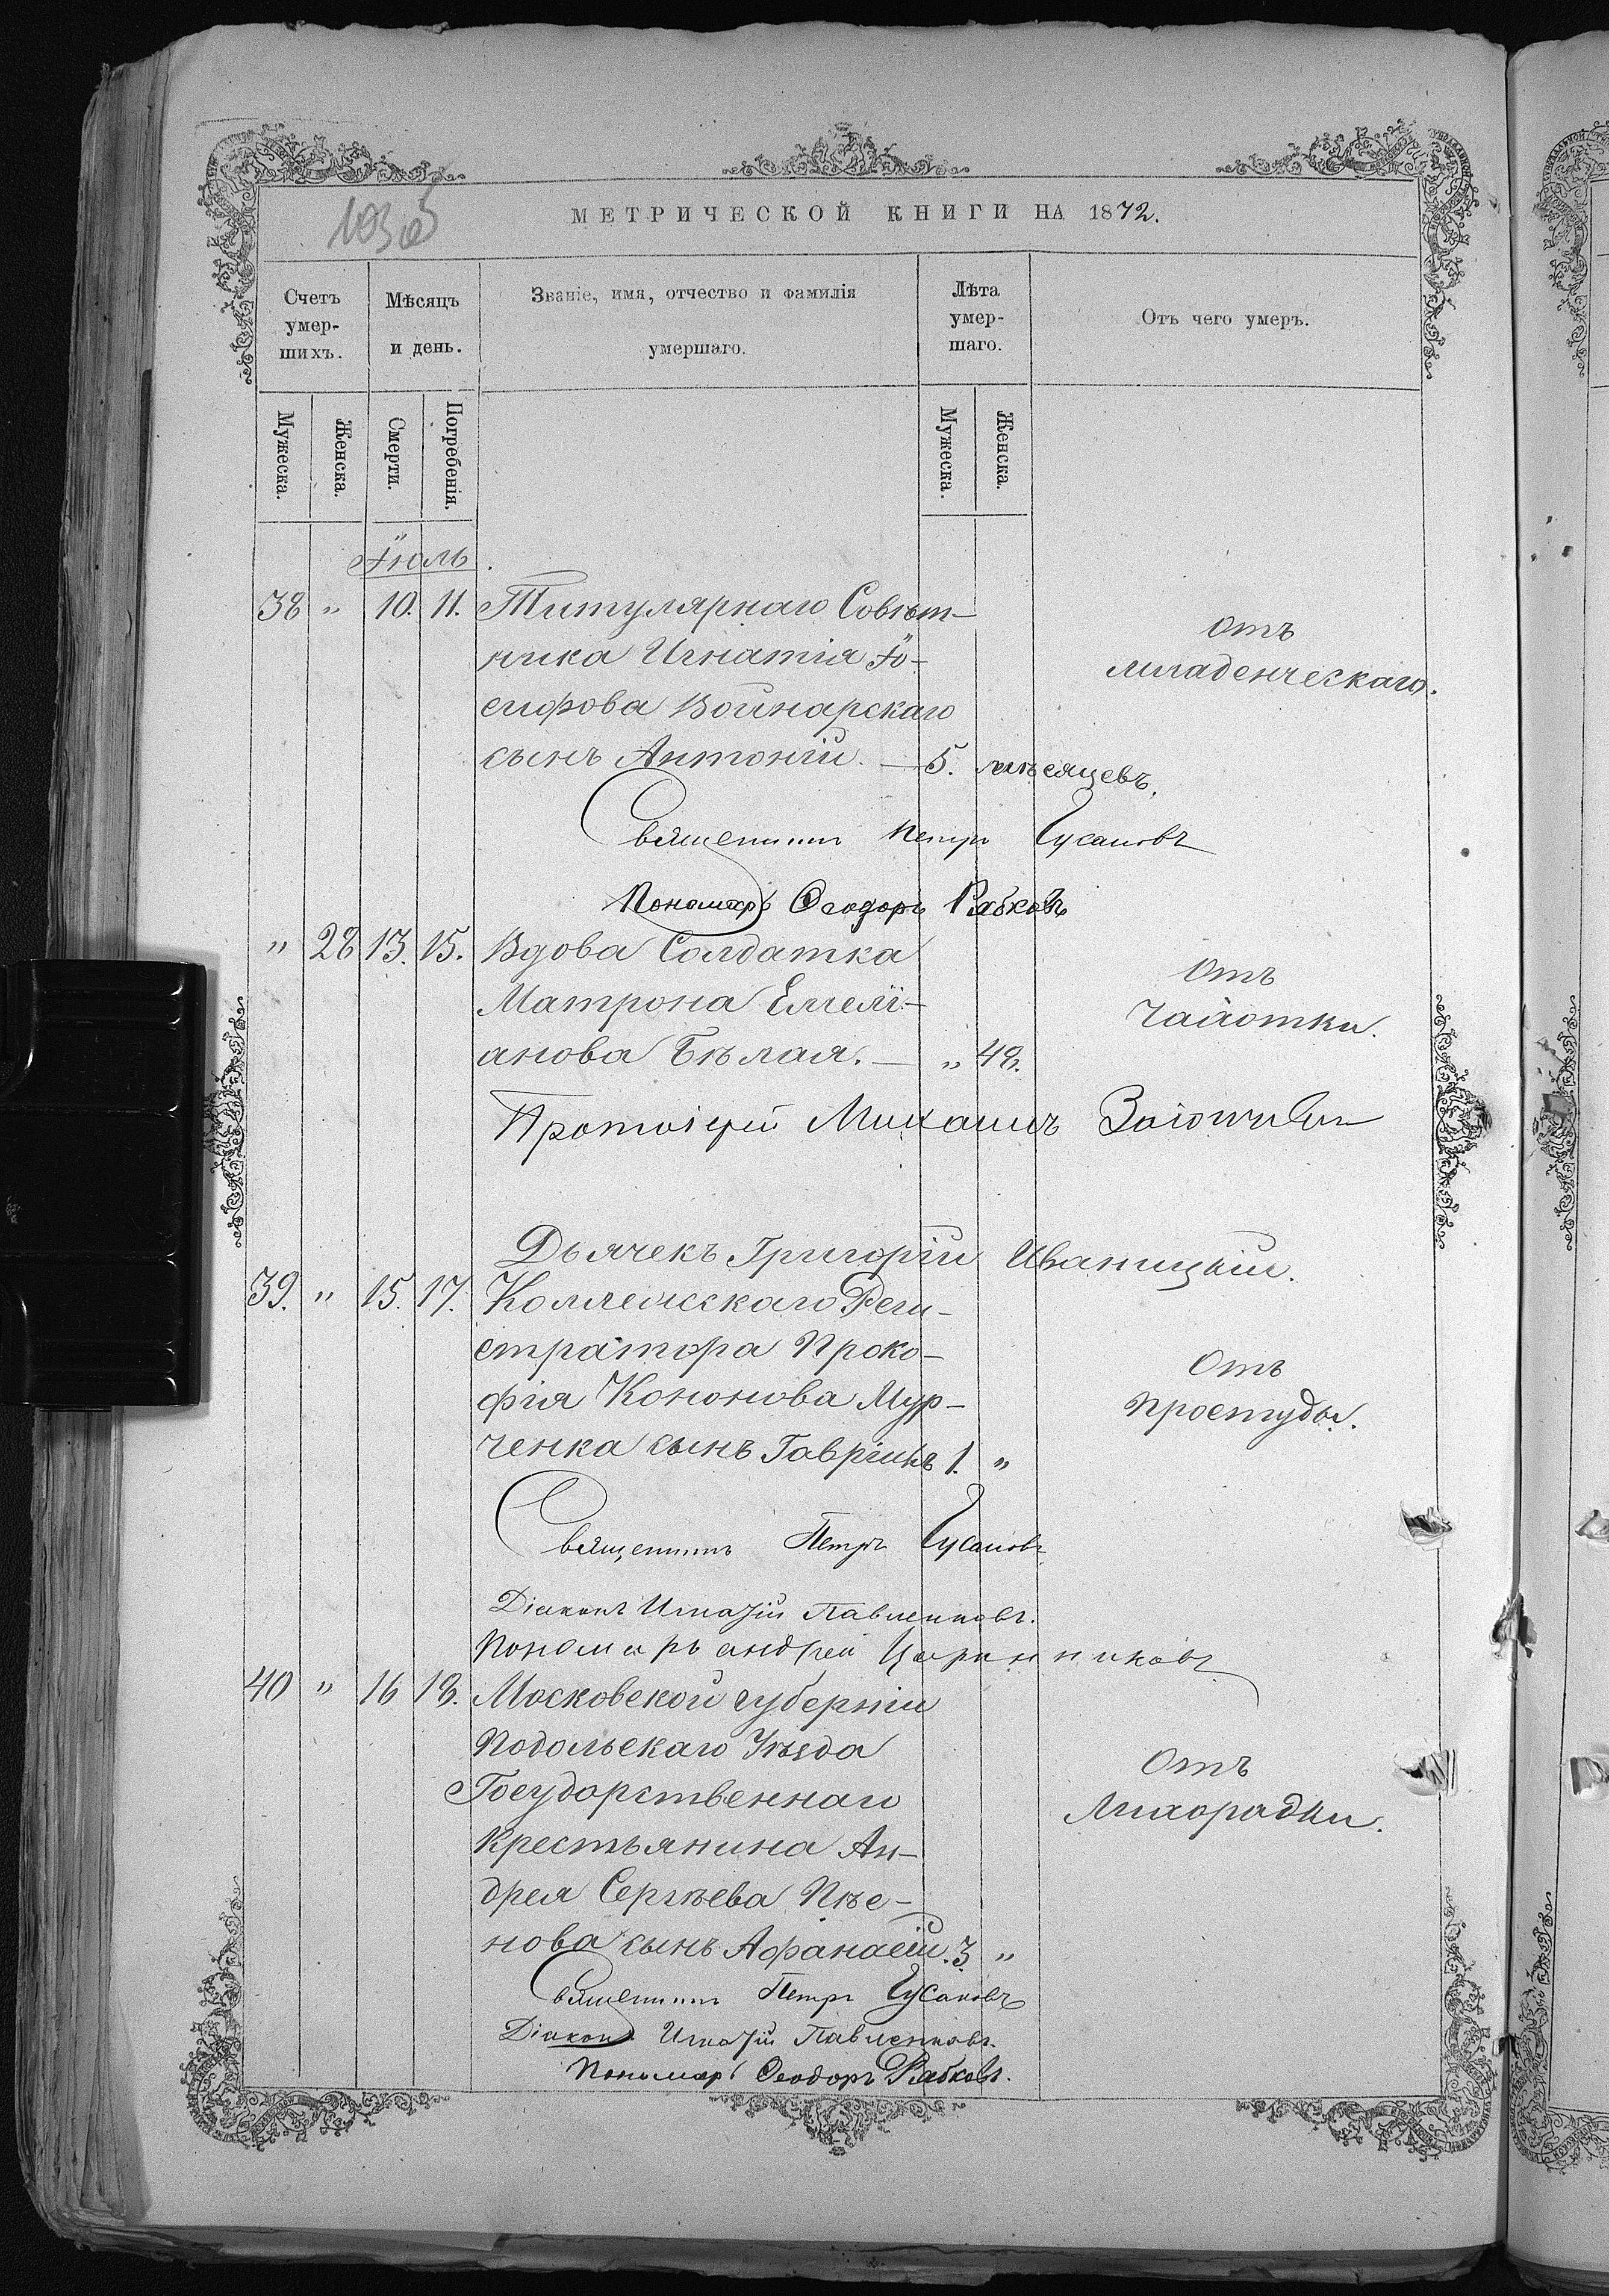 МЕТРИЧЕСКОЙ КНИГИ НА 1872.
Счетъ умер-шихъ.
Мѣсяцъ и день.
Званіе, имя, отчество и фамилія умершаго.
Лѣта умер-шаго.
Отъ чего умеръ.
Мужеска. Женска. Смерти. Погребенія. Мужеска. Женска.
Іюль.
38 " 10. 11. Титулярнаго Совѣт-
ника Игнатія Іо-
сифова Войнарскаго
сынъ Антоній. — 5. мѣсяцевъ.
отъ
младенческаго.
Священникъ Петръ Гусаковъ
Пономарь Ѳеодоръ Рябковъ
" 28 13. 15. Вдова Солдатка
Матрона Емелі-
анова Бѣлая. — " 48.
Отъ
Чахотки.
Протоіерей Михаилъ
Дьячекъ Григорій Иваницкій.
39. " 15. 17. Коллежскаго Реги-
стратора Проко-
фія Кононова Мур-
ченка сынъ Гавріилъ 1. "
Отъ
простуды.
Священникъ Петръ Гусаковъ
Діаконъ Игнатій Павленковъ.
Пономарь Андрей
40 " 16 18. Московской губерніи
Подольскаго Уѣзда
Государственнаго
крестьянина Ан-
дрея Сергѣева
сынъ Афанасій. 3 "
Отъ
Лихорадки.
Священникъ Петръ Гусаковъ
Діаконъ Игнатій Павленковъ.
Пономарь Ѳеодоръ Рябковъ.